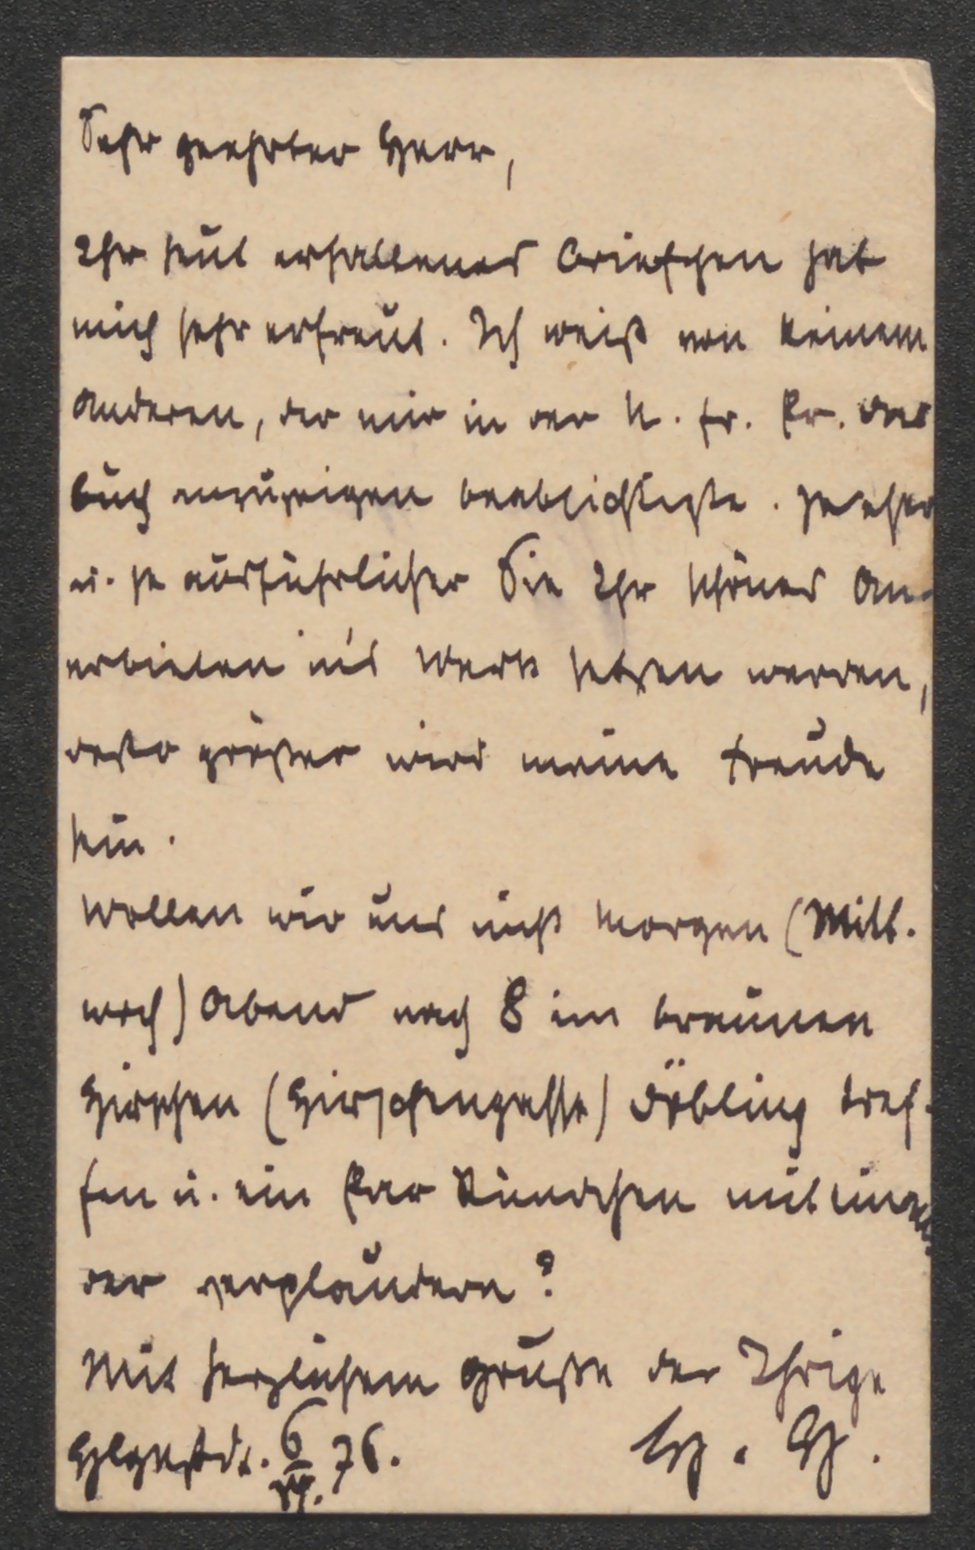 Sehr geehrter Herr,
Ihr heut erhaltenes Briefchen hat
mich sehr erfreut. Ich weiß von keinem
Anderen, der mir in der N. fr. Pr. das
Buch anzuzeigen beabsichtigte. Je eher
u. je ausführlicher Sie Ihr schönes An-
erbieten in's Werk setzen werden,
desto größer wird meine Freude
sein.
Wollen wir uns nicht morgen (Mitt-
woch) Abend nach 8 im braunen
Hirschen (Hirschengasse) Döbling tref-
fen u. ein Par Stündchen miteinan
der verplaudern?
Mit herzlichem Gruße der Ihrige
6 76.